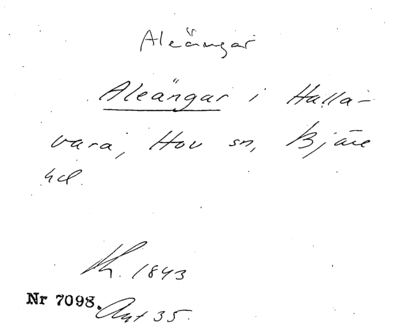 Aleängar
Aleängar i Halla-
vara, Hov sn, Bjäre
hd.
Th. 1843
Nr 7098. Ant 35.